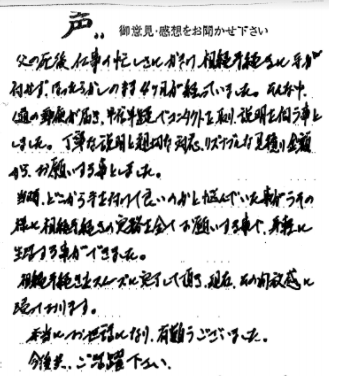 声
御意見・感想をお聞かせ下さい
父の死後、仕事の忙しさにかまけ、相続手続きに手が
付せず、ほったらかしのまま4ヶ月が経っていました。そんな中、
1通の郵便が届き、半信半疑でコンタクトを取り、説明を伺う事と
しました。丁寧な説明と親切な対応、リーズナブルな見積り金額
から、お願いする事としました。
当時、どこから手を付けて良いのかと悩んでいた事がウソの
様に相続手続きの実務を全てお願いする事で、身軽に
生活する事ができました。
相続手続きもスムーズに完了して頂き、現在、その開放感に
浸っております。
本当にお世話になり、有難うございました。
今後共、ご活躍下さい。